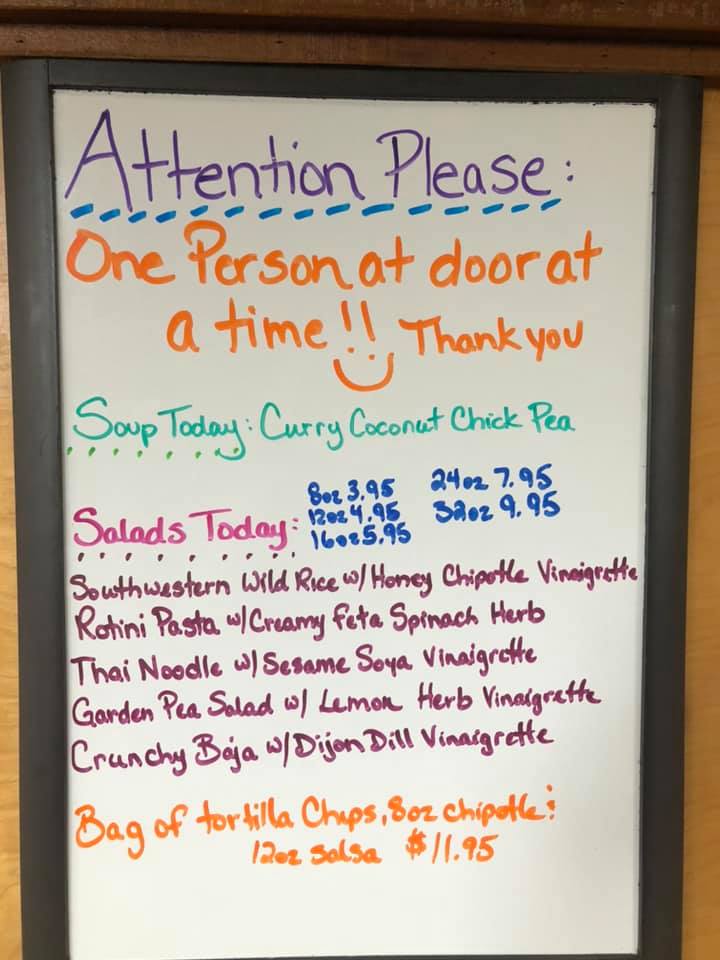 Attention Please:
One Person at door at
a time!! Thank you
Soup Today: Curry Coconut Chick Pea
Salads Today:
8oz 3.95
12oz 4.95
16oz 5.95
24oz 7.95
32oz 9.95
Southwestern Wild Rice w/ Honey Chipotle Vinaigrette
Rotini Pasta w/ Creamy Feta Spinach Herb
Thai Noodle w/ Sesame Soya Vinaigrette
Garden Pea Salad w/ Lemon Herb Vinaigrette
Crunchy Baja w/ Dijon Dill Vinaigrette
Bag of tortilla Chips, 8oz chipotle &
12oz salsa $11.95